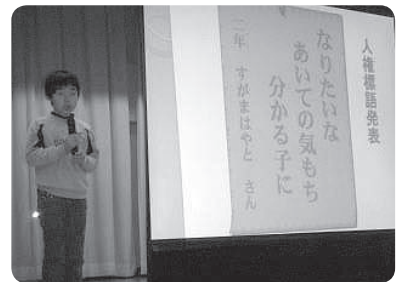 人権標語発表
なりたいな
あいての気もち
分かる子に
二年 すがまはやと さん